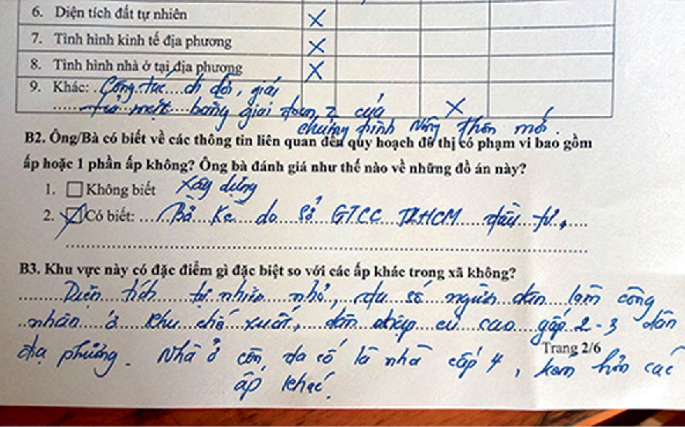 6. Diện tích đất tự nhiên X
7. Tình hình kinh tế địa phương X
8. Tình hình nhà ở tại địa phương X
9. Khác: Công tác di dời, giải
tỏa mặt bằng giai đoạn 2 của X
chương trình nông thôn mới.
B2. Ông/Bà có biết về các thông tin liên quan đến quy hoạch đô thị có phạm vi bao gồm
ấp hoặc 1 phần ấp không? Ông bà đánh giá như thế nào về những đồ án này?
1. Không biết Xây dựng
2. Có biết: Bờ Kè do Sở GTCC TPHCM đầu tư,
B3. Khu vực này có đặc điểm gì đặc biệt so với các ấp khác trong xã không?
Diện tích tự nhiên nhỏ, đa số người dân làm công
nhân ở khu chế xuất, dân nhập cư cao gấp 2-3 dân
Trang 2/6
địa phương. Nhà ở còn đa số là nhà cấp 4, kém hơn các
ấp khác.